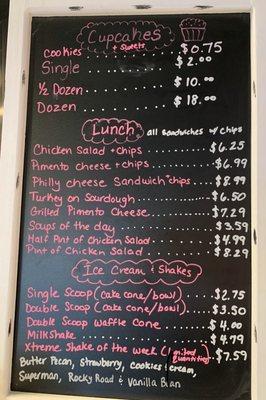 Cupcakes
+ sweets
Cookies $0.75
Single $2.00
½ Dozen $10.00
Dozen $18.00
Lunch all sandwiches w/chips
Chicken Salad + chips $6.25
Pimento cheese + chips $6.99
Philly cheese Sandwich + chips $8.99
Turkey on Sourdough $6.50
Grilled Pimento Cheese $7.29
Soups of the day $3.59
Half Pint of Chicken Salad $4.99
Pint of Chicken Salad $8.29
Ice Cream & Shakes
Single Scoop (cake cone/bowl) $2.75
Double Scoop (cake cone/bowl) $3.50
Double Scoop Waffle Cone $4.00
Milkshake $4.79
Xtreme Shake of the week (limited quantities) $7.59
Butter Pecan, Strawberry, cookies & cream,
Superman, Rocky Road & Vanilla Bean